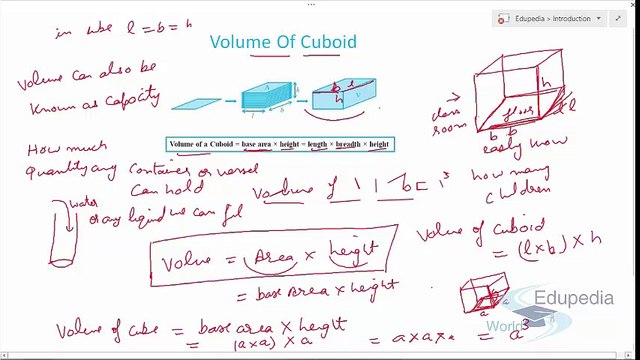 Edupedia > Introduction
in cube l = b = h
Volume Of Cuboid
Volume can also be
known as capacity
b l
h
Volume of a Cuboid = base area × height = length × breadth × height
h
floor
l
b b
class
room
easily know
how many
children
How much
quantity any container or vessel
can hold
water
or any liquid we can fill
Volume of
Volume = Area × height
= base Area × height
Volume of cuboid
= (l × b) × h
a a
Edupedia
World
Volume of cube = base area × height
= (a × a) × a = a × a × a = a³